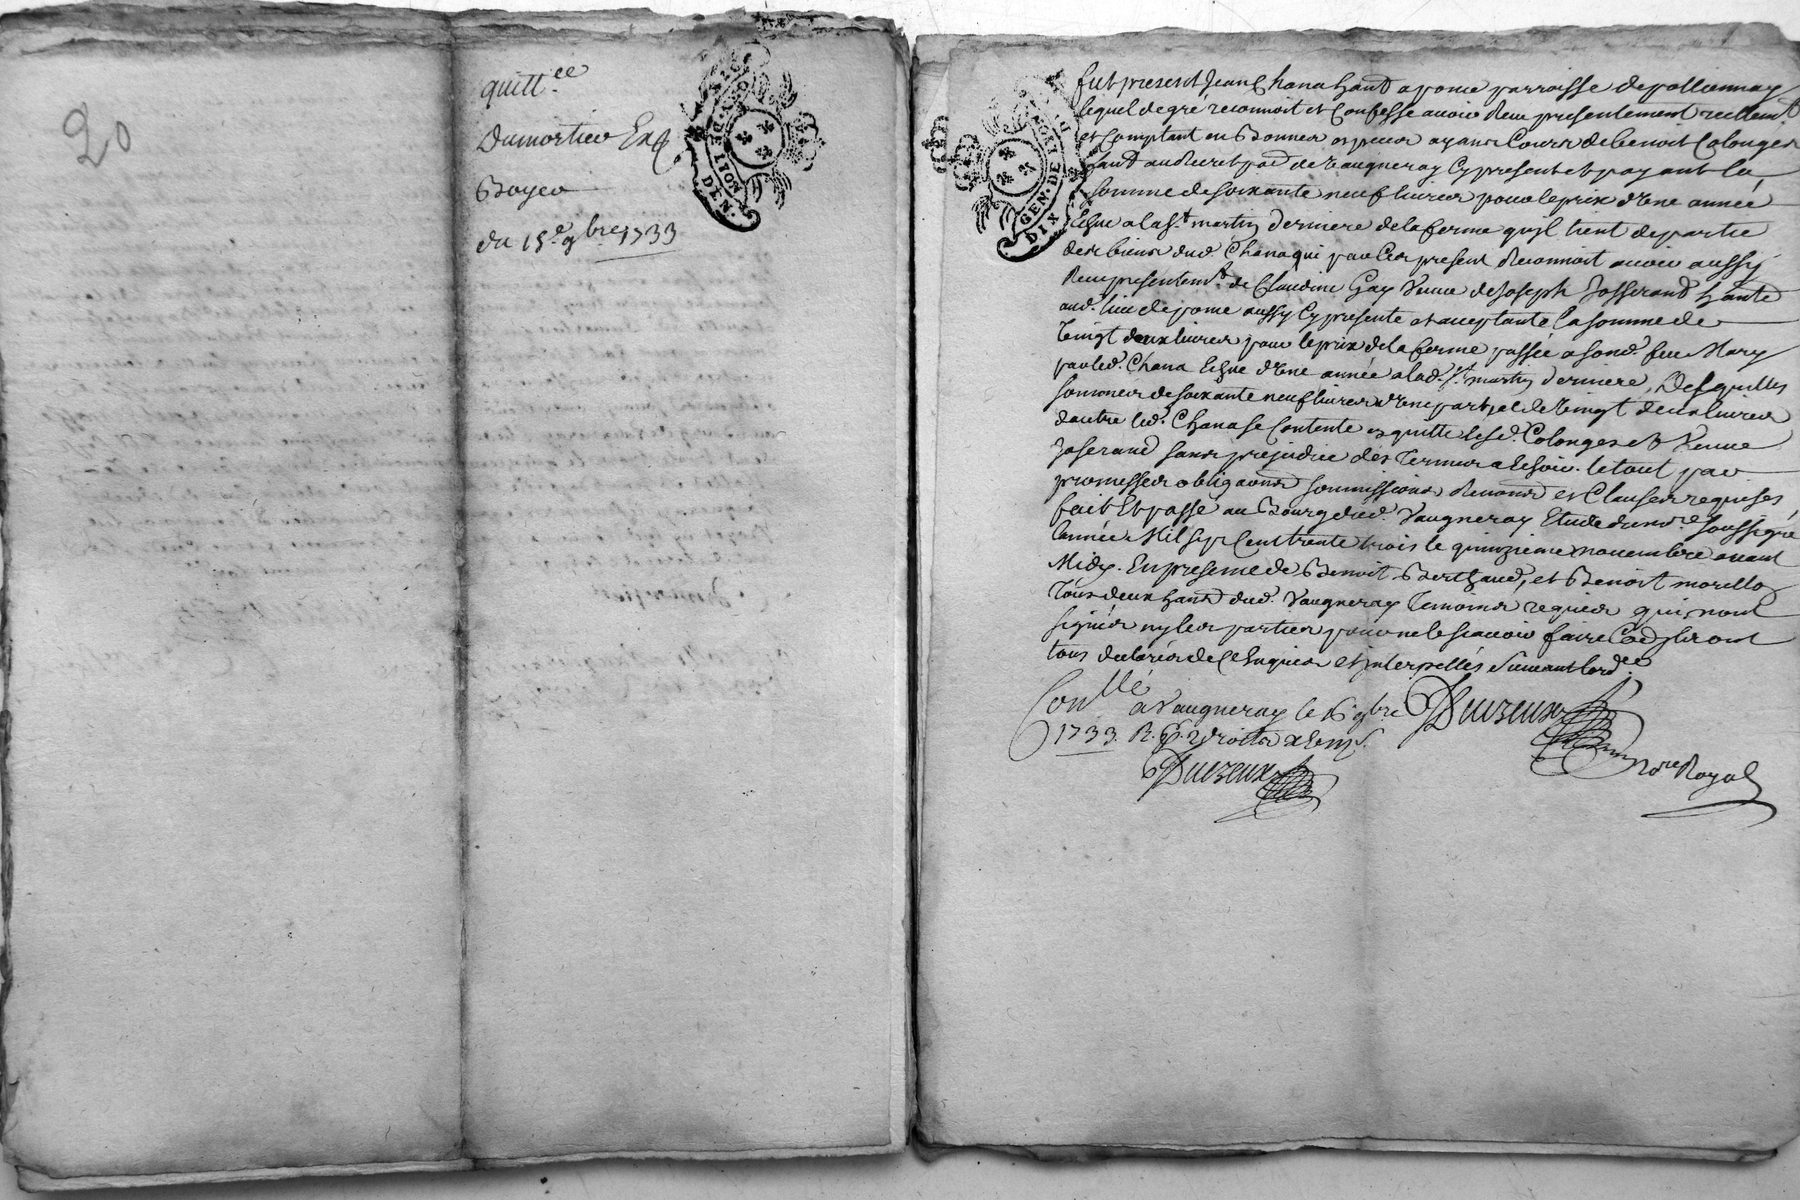 20
quitt.ce
Dumortier Ex
Boyer
du 15e 9bre 1733
GEN. DE LYON
DEN.
fut present Jean Chana habt a pome parroisse de pollionnay
lequel de gré reconnoit et Confesse avoir Receu presentement reellemt
et Comptant en Bonnes especes ayans Cours de benoit Colonges
habt au de Vaugneray Cy present et payant la
somme de soixante neuf livres pour le prix d'Une année
Echue a la st martin derniere de la ferme qu'jl tient de partie
des biens dud. Chana qui par Ces presentes Reconnoit avoir aussy
Receu presentemt de Claudine Gay Veuve de Joseph Josserand habte
aud. lieu de pome aussy Cy presente et acceptante la somme de
Vingt deux livres pour le prix de la ferme passée a sond. feu Mary
par led. Chana Echue d'Une année a lad. st martin derniere, Desquelles
sommes de soixante neuf livres d'Une part, et de Vingt deux livres
d'autre led. Chana se Contente et quitte lesd. Colonges et Veuve
Joserand sans prejudice des Termes a Echoir. le tout par
promesses obligaons soumissions Renonons et Clauses requises
fait Et passé au Bourg dud. Vaugneray Etude du nore soussigné
l'année Mil sept Cent trente trois le quinzieme novembre avant
Midy. En presence de Benoit Berthaud, et Benoit morellon
Tous deux habts dud. Vaugneray Temoins requis qui n'ont
signés ny les parties pour ne le scavoir faire Ce qu'jls ont
tous declarés de Ce Enquis et jnterpellés Suivant l'ordce
Conllé a Vaugneray le 15 9bre
1733. R.
GEN. DE LYON
DIX
nore Royal